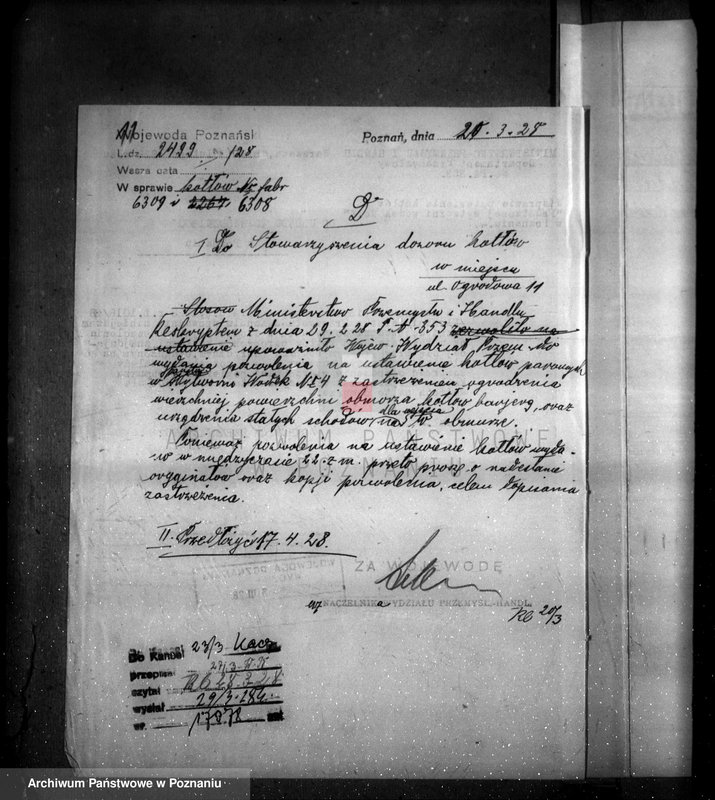 Wojewoda Poznański
Poznań, dnia 20.3.28
L.dz. 2499 /28
Wasza data
W sprawie kotłów № fabr
6309 i 2267 6308
D
I Do Stowarzyszenia dozoru kotłów
w miejscu
ul. Ogrodowa 11
Ministerstwo Przemysłu i Handlu
Reskryptem z dnia 29.2.28 353 zezwoliło na
ustawienie upoważniło Wydział Przem. do
wydania pozwolenia na ustawienie kotłów parowych
w Wytworni Wódek № 4 z zastrzeżeniem ogrodzenia
wierzchniej powierzchni obmurza kotłów barjerą, oraz
urządzenia stałych schodów dla wejścia na obmurze.
Ponieważ pozwolenia na ustawienie kotłów wyda-
no w międzyczasie 22. z.m. przeto proszę o nadesłanie
orginałów oraz kopji pozwolenia, celem dopisania
zastrzeżenia.
II. Przedłożyć 17.4.28.
ZA WOJEWODĘ
NACZELNIK WYDZIAŁU PRZEMYSŁ.-HANDL.
20/3
Do Kancel 23/3. Kacz
przepisał 27/3
czytał 28.3.28
wysłał 29/3
nr. 17978 zał
ARCHIWUM PAŃSTWOWE
Archiwum Państwowe w Poznaniu